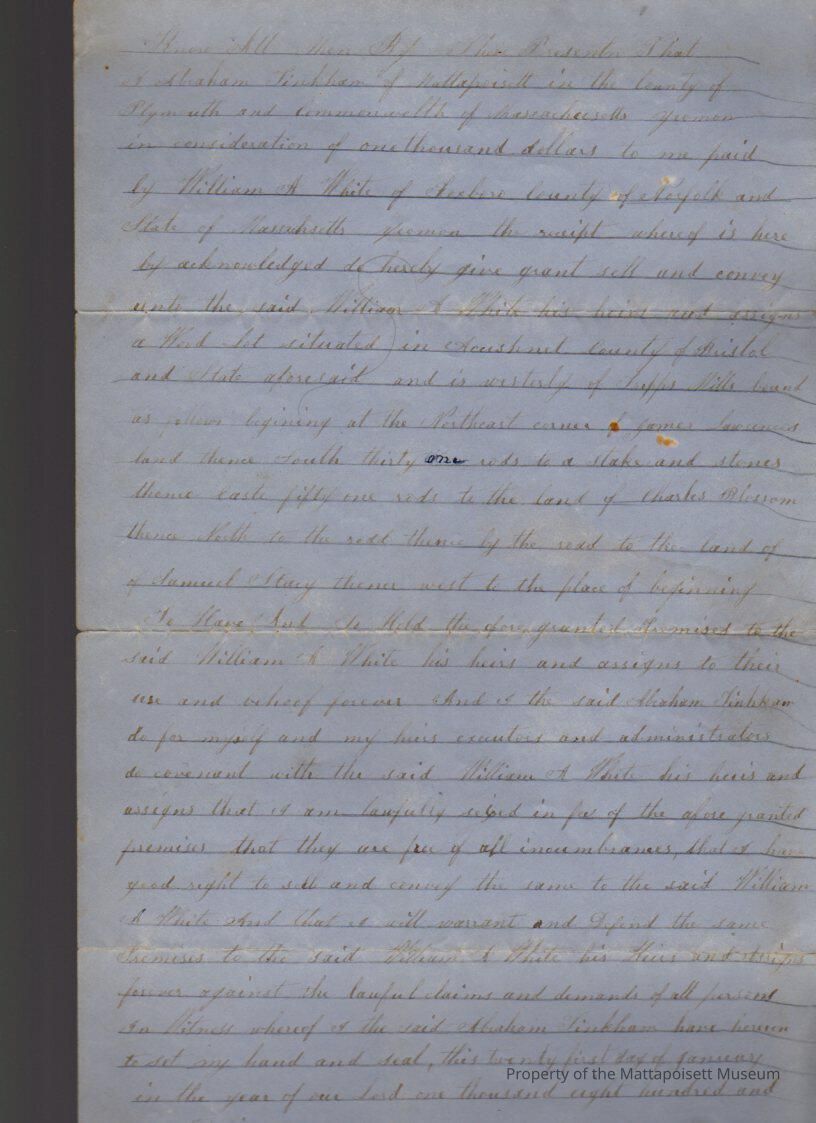 Know All Men By These Presents That
I Abraham Tinkham of Mattapoisett in the County of
Plymouth and Commonwealth of Massachusetts yeoman
in consideration of one thousand dollars to me paid
by William A White of Foxboro County of Norfolk and
State of Massachsetts yeoman the receipt whereof is here
by acknowledged do hereby give grant sell and convey
unto the said William A White his heirs and assigns
a Wood Lot situated in Acushnet County of Bristol
and State aforesaid and is westerly of Mills bound
as follows begining at the Northeast corner of James
land thence South thirty one rods to a stake and stones
thence east fifty one rods to the land of Charles Blossom
thence North to the road thence by the road to the land of
of Samuel Stacy thence west to the place of beginning
To Have And to Hold the afore granted Premises to the
said William A White his heirs and assigns to their
use and behoof forever And I the said Abraham Tinkham
do for myself and my heirs executors and administrators
do covenant with the said William A White his heirs and
assigns that I am lawfully seized in fee of the afore granted
premises that they are free of all incumbrances, that I have
good right to sell and convey the same to the said William
A White And that I will warrant and Defend the same
Premises to the said William A White his Heirs and assigns
forever against the lawful claims and demands of all persons
In Witness whereof I the said Abraham Tinkham have hereun
to set my hand and seal, this twenty first day of January
Property of the Mattapoisett Museum
in the year of our Lord one thousand eight hundred and